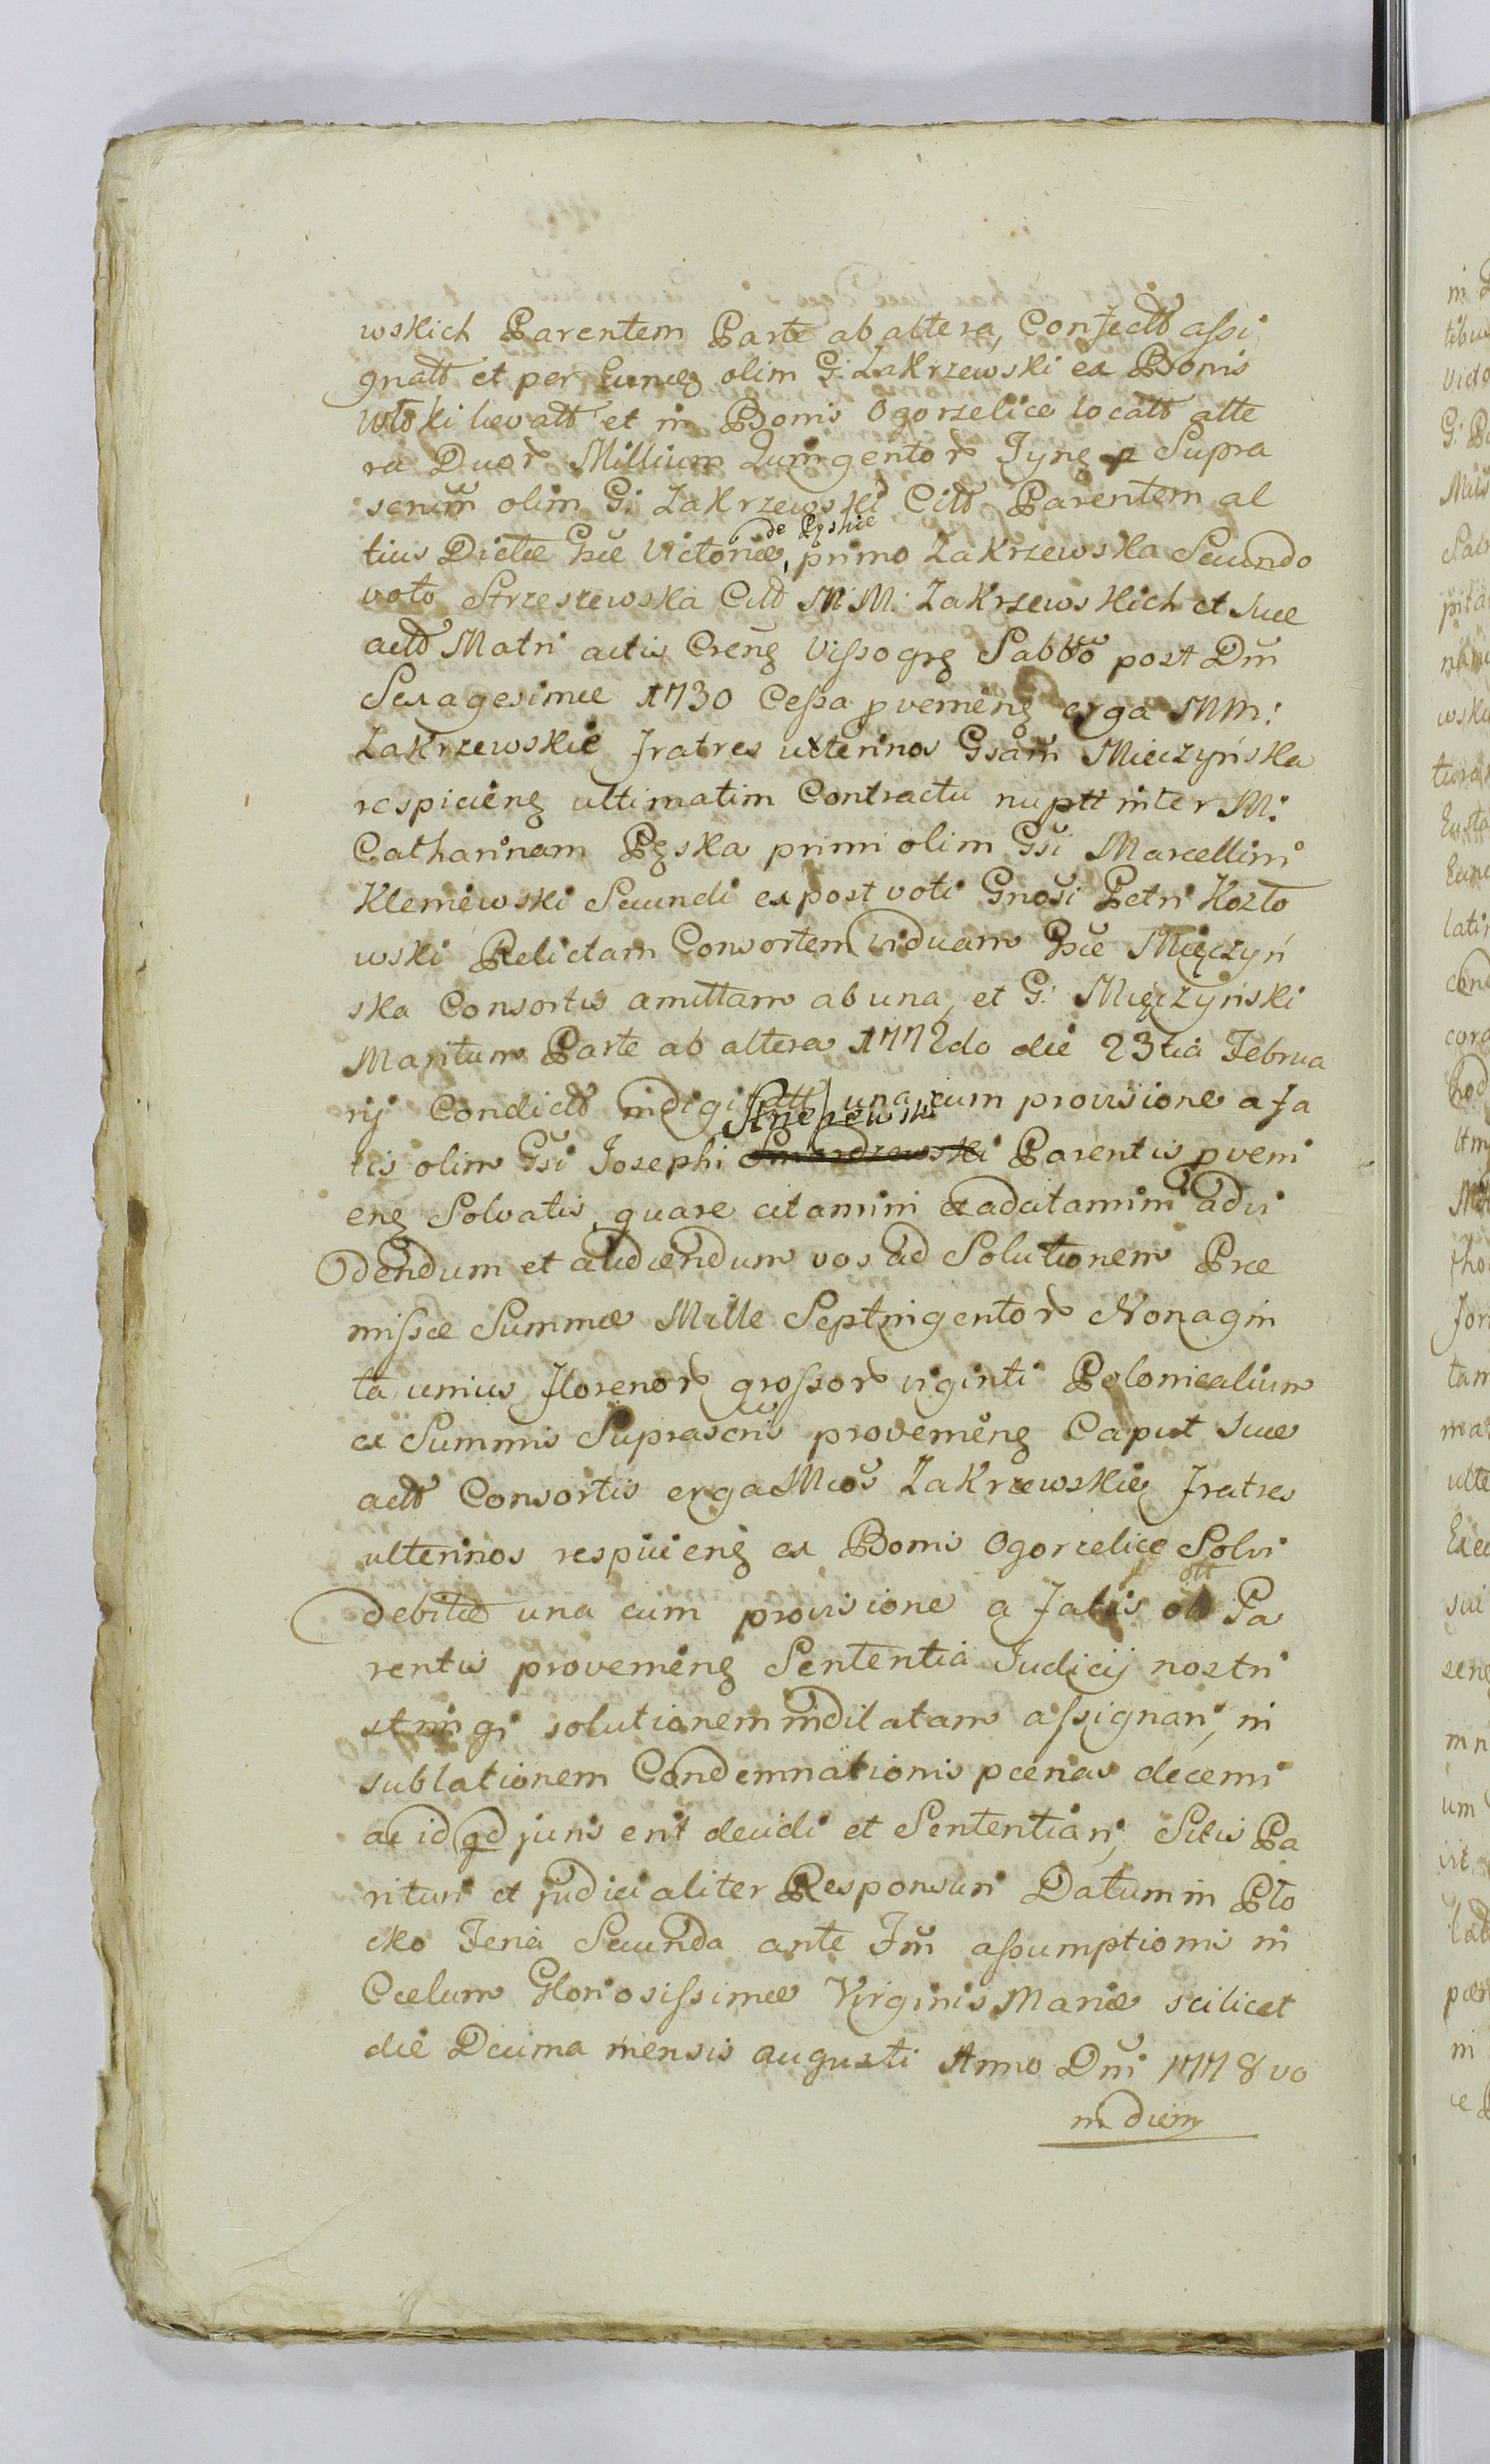 wskich Parentem Parte ab altera, Confectt aſsi
gnatt et per Eund olim G: Zakrzewski ex Bonis
Wtoki levatt et in Bonis Ogorzelice locatt alte
ra Duor Millium Quingentor Fynę p Supra
scrum̃ olim G: Zakrzewski Citt Parentem al
tius Dictæ Gsæ Victoriæ, de Pęskie primo Zakrzewska Secundo
voto Strzeszewska Citt MM: Zakrzewskich et suæ
actt Matri actis Crenę Viſsogrę Sabbo post Dm̃
Sexagesimæ 1730 Ceſsa pvemenę erga MM:
Zakrzewskie Fratres uterinos Gsam̃ Mieczyńska
respicienę ultimatim Contractu nuptt inter M:
Catharinam Pęska primi olim Gsi Marcellini
Kleniewski Secundi ex post voti Gnosi Petri Kozło
wski Relictam Consortem viduam Gsæ Mięczyń
ska Consortis amittam ab una, et G: Mięczyński
Maritum Parte ab altera 1772do die 23tia Februa
rij Condictt indigitatt una cum provisione a fa
tis olim Gsi Josephi Strzeszewski Parentis pveni
enę Solvatis, quare citamini et adcitamini ad vi
dendum et audiendum vos ad Solutionem Præ
miſsæ Summæ Mille Septingentor Nonagin
ta unius florenor groſsor viginti Polonicalium
ex Summis Suprascris provemenę Caput suæ
actt Consortis erga Mcos Zakrzewskie Fratres
ulterinos respicienę ex Bonis Ogorzelice Solvi
debitæ una cum provisione a fatis ott Pa
rentis provemenę Sententia Judicij nostri
stringi solutionem indilatam aſsignari, in
sublationem Condemnationis pœnas decerni
ac id qd juris erit decidi et Sententiari, Sitis Pa
rituri et judicialiter Responsuri Datum in Pło
cko Feria Secunda ante Fm̃ aſsumptionis in
Cœlum Gloriosiſsimæ Virginis Mariæ scilicet
die Decima mensis augusti Anno Dni 1778vo
in diem